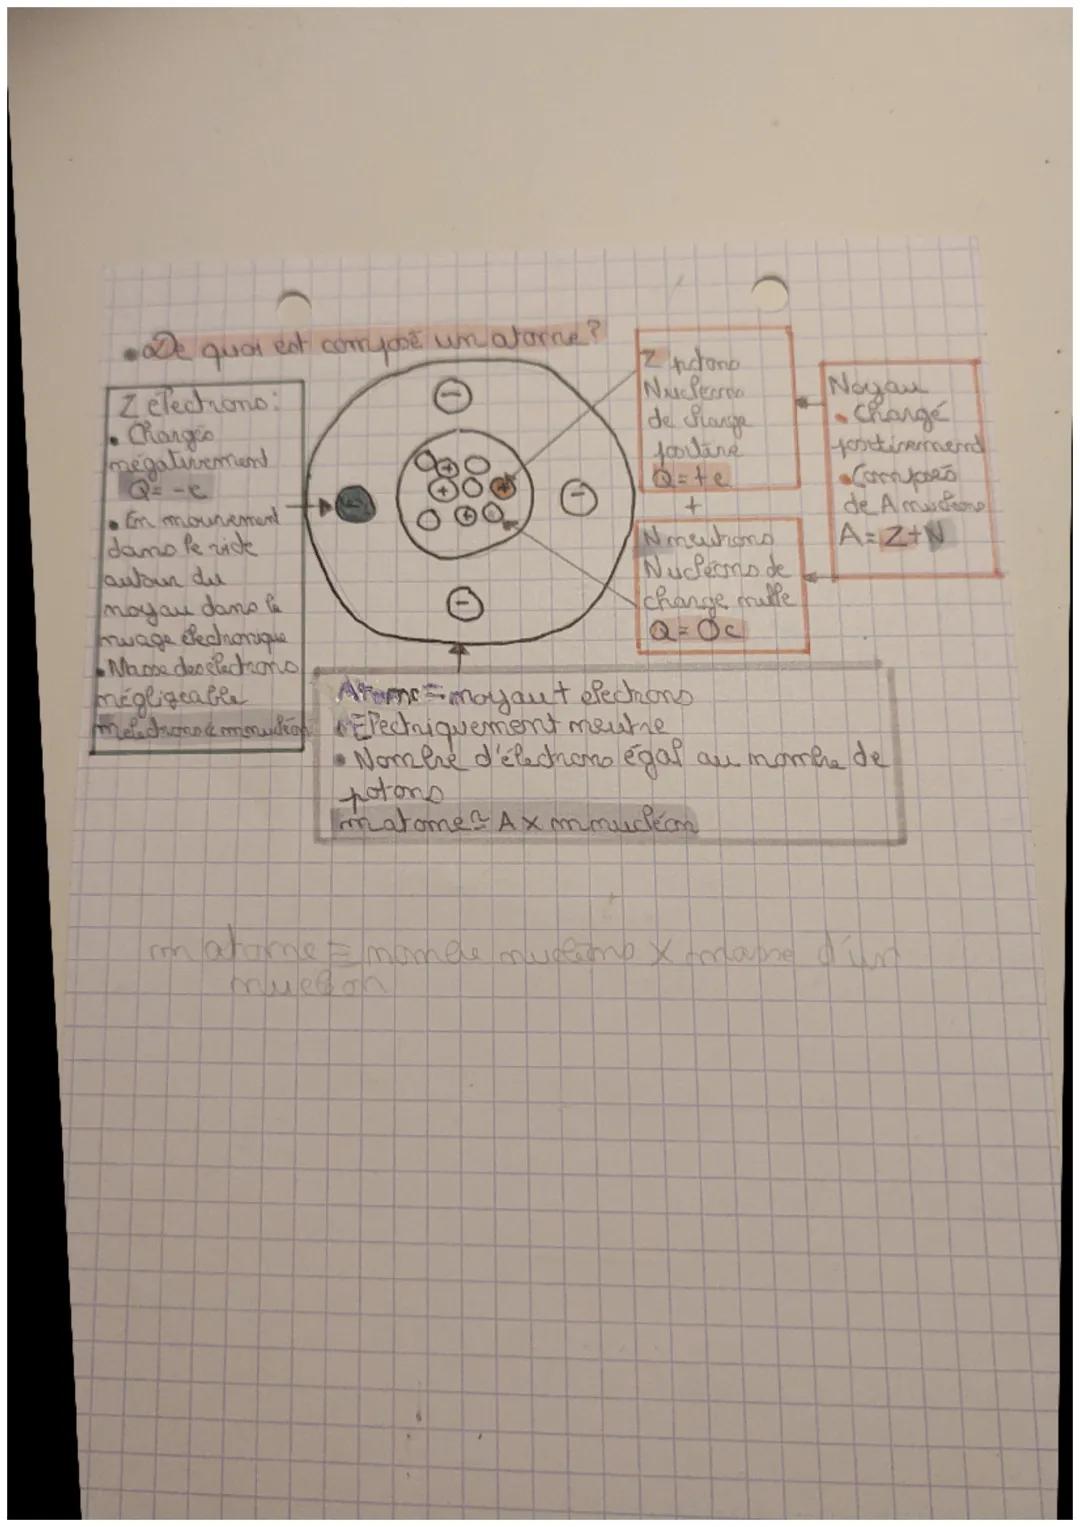 • De quoi est composé un atome?
Z électrons:
• Chargés
négativement
Q= -e
• En mouvement
dans le vide
autour du
noyau dans le
nuage électronique
• Masse des électrons
négligeable
Z protons
Nucléons
de charge
positive
Q=+e
+
N neutrons
Nucléons de
charge nulle
Q= 0c
Noyau
• Chargé
positivement
• Composés
de A nucléons
A= Z+N
Atome = noyau + électrons
• Electriquement neutre
• Nombre d'électrons égal au nombre de
potons
m atome ≃ A x m nucléon
m atome = nombre nucléons x masse d'un
nucléon